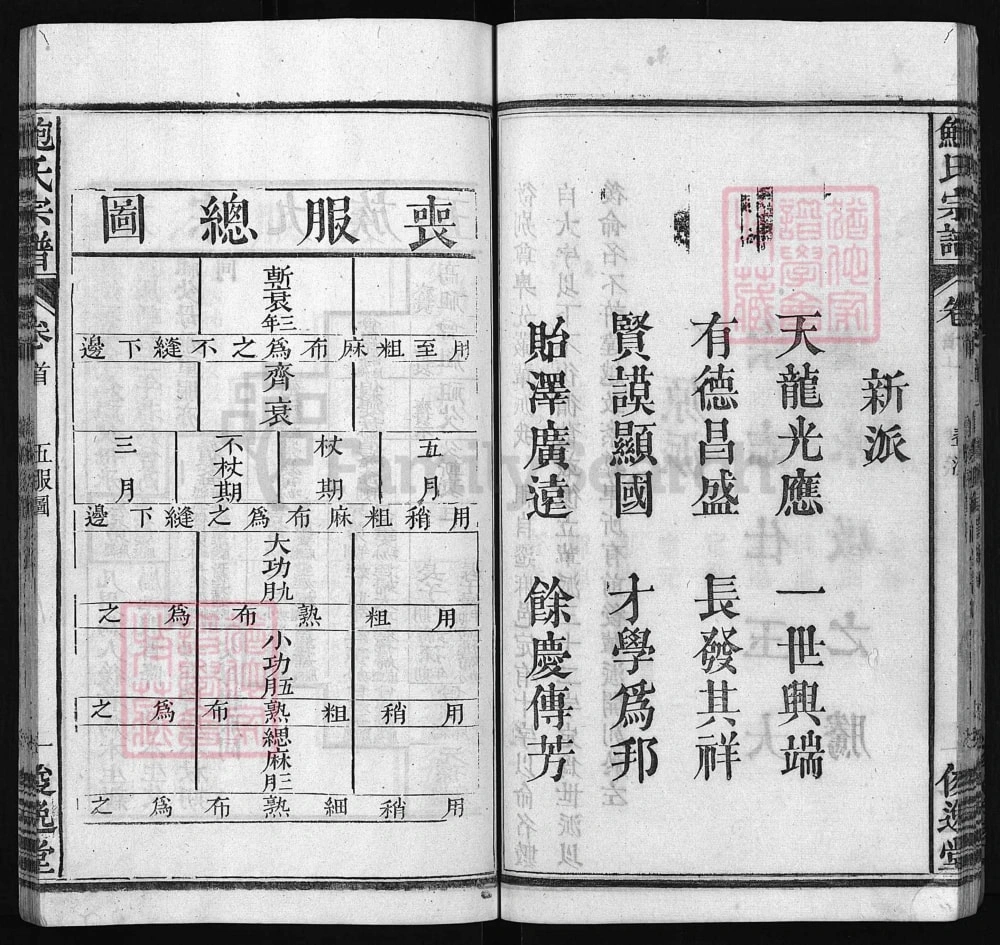 鮑氏宗譜
卷
新派
天龍光應 一世興端
有德昌盛 長發其祥
賢謨顯國 才學爲邦
貽澤廣遠 餘慶傳芳
喪服總圖
斬衰三年
用至粗麻布爲之不縫下邊
齊衰
五月
杖期
不杖期
三月
用稍粗麻布爲之縫下邊
大功九月
用粗熟布爲之
小功五月
用稍粗熟布爲之
緦麻三月
用稍細熟布爲之
鮑氏宗譜
卷首
五服圖
一
FamilySearch